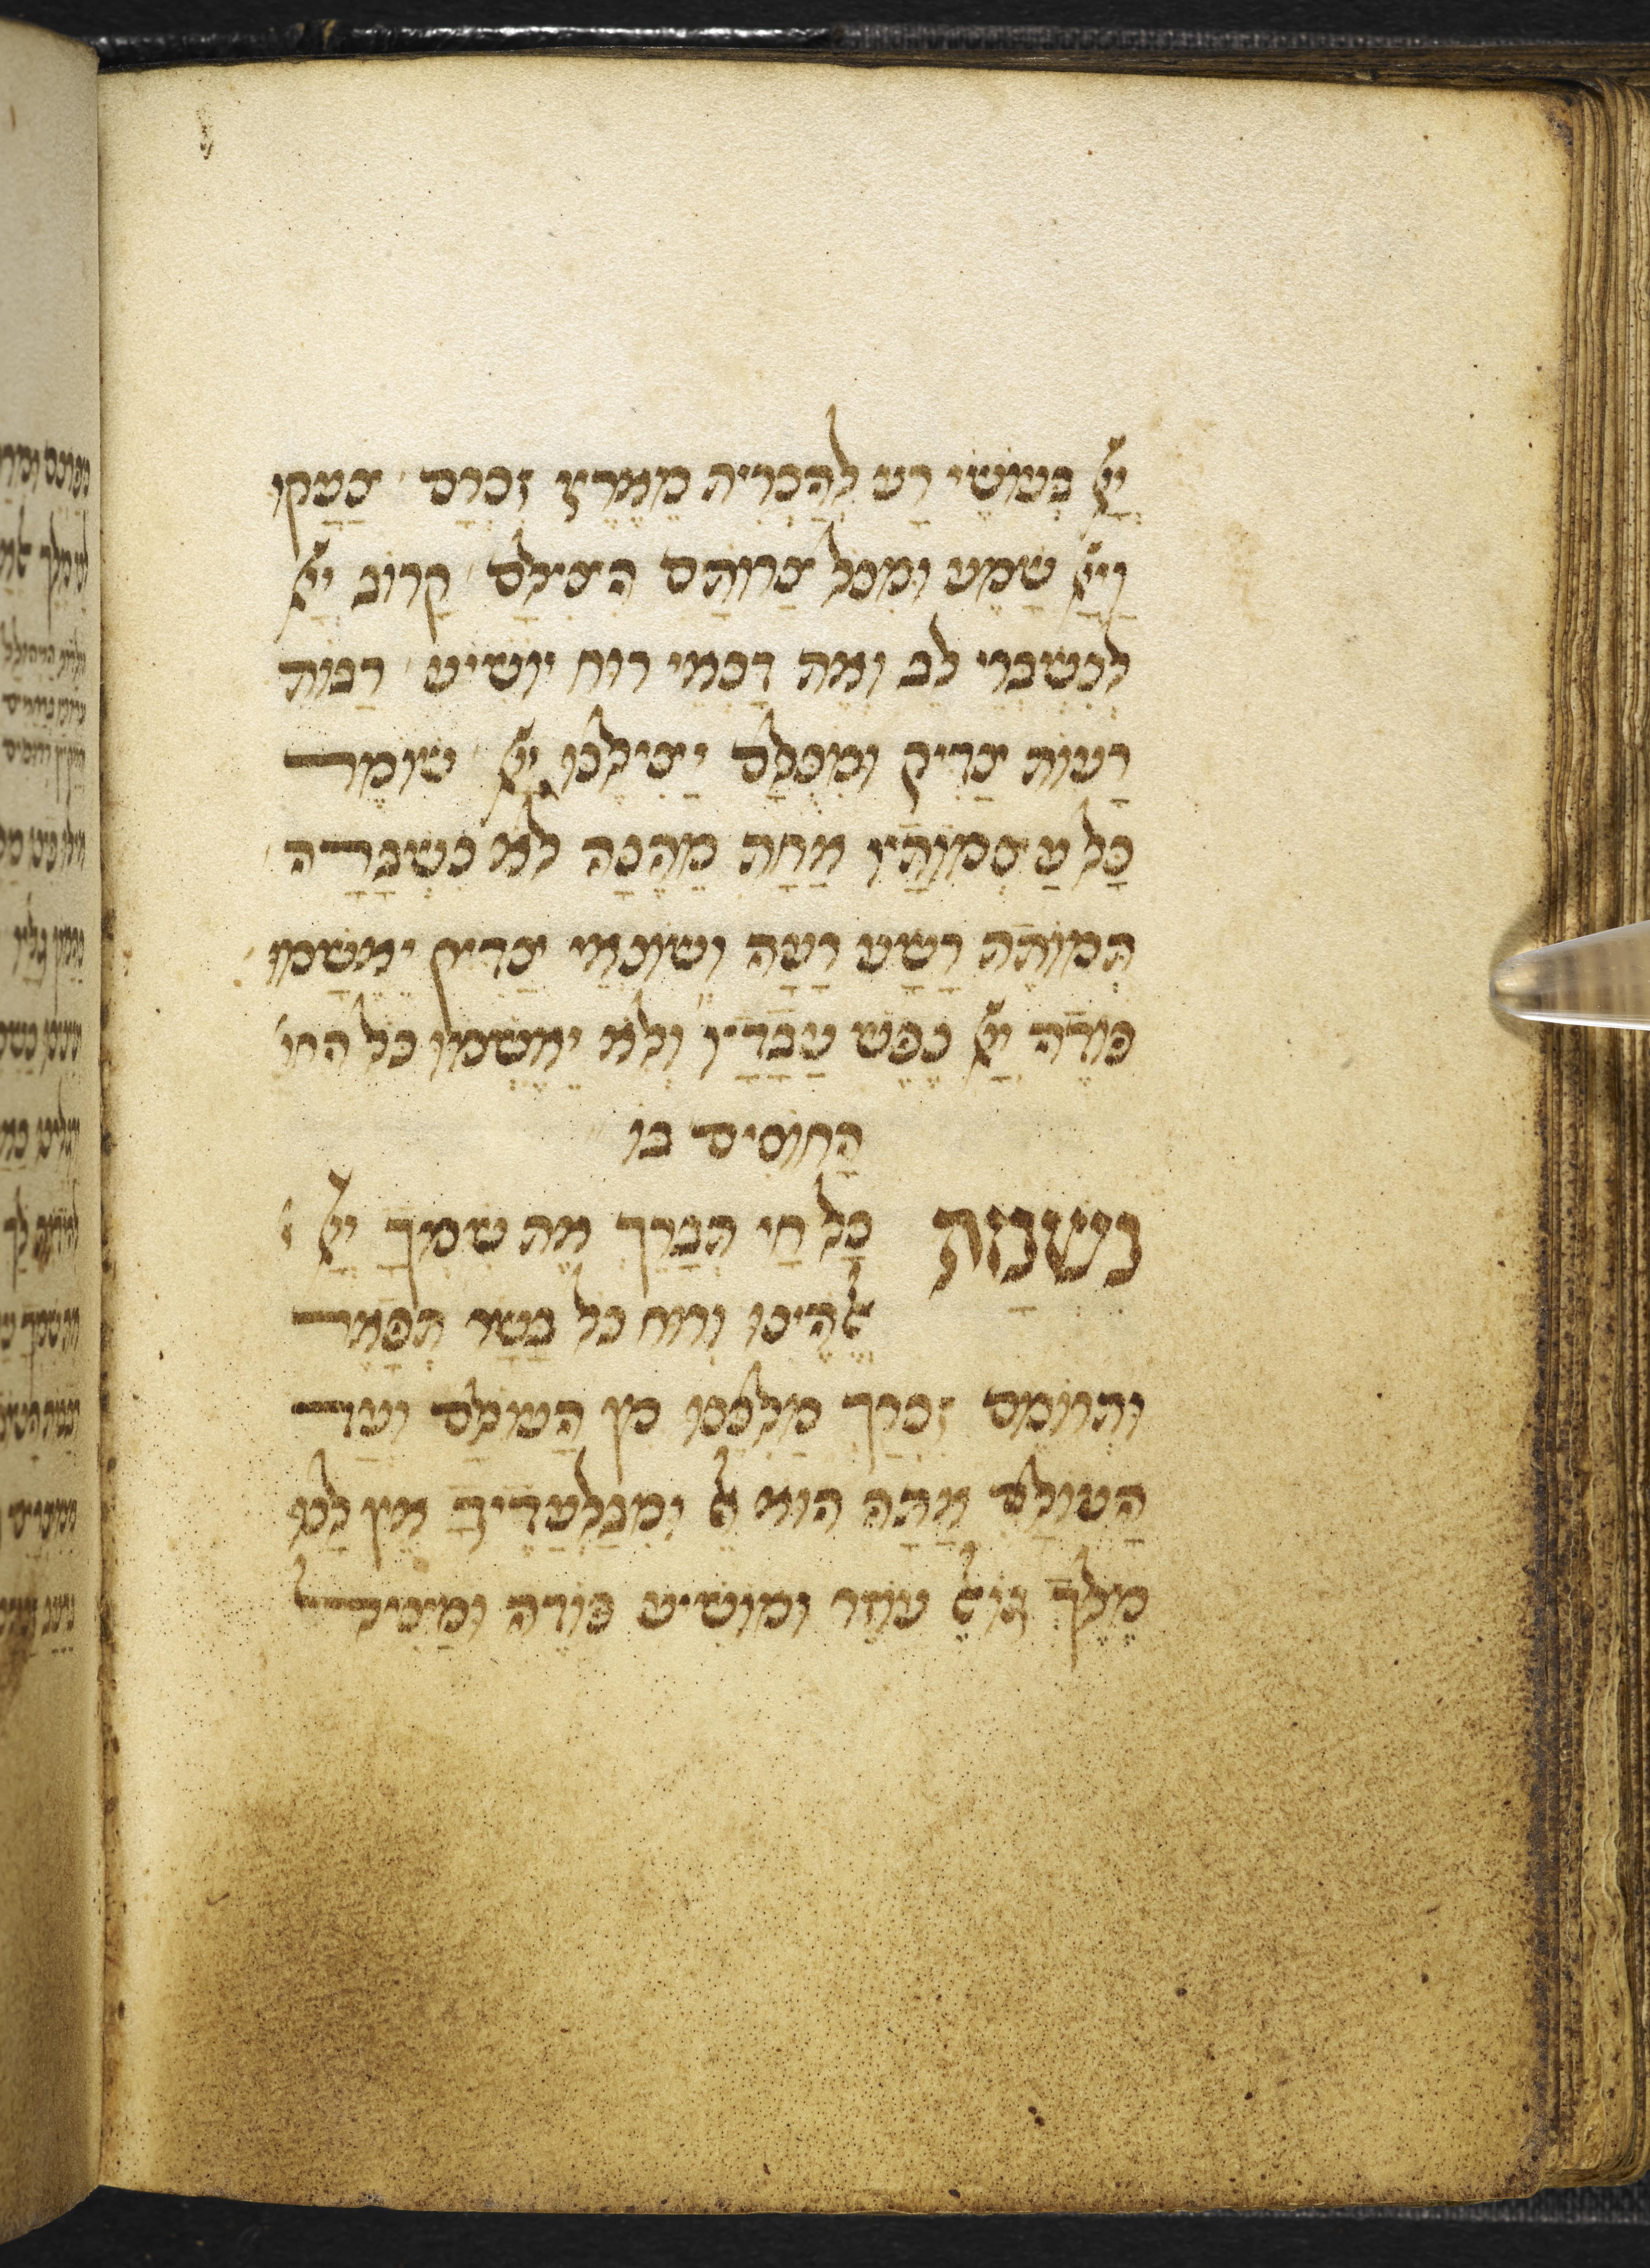 יי בעושי רע להכרית מארץ זכרם צעקו
ויי שמע ומכל צרותם הצילם קרוב יי
לנשברי לב ואת דכאי רוח יושיע רבות
רעות צדיק ומכלם יצילנו יי שומר
כל עצמותיו אחת מהנה לא נשברה
תמותת רשע רעה ושונאי צדיק יאשמו
פודה יי נפש עבדיו ולא יאשמו כל החו
החוסים בו
נשמת כל חי תברך את שמך יי
אלהינו ורוח כל בשר תפאר
ותרומם זכרך מלכנו מן העולם ועד
העולם אתה הוא אל ומבלעדיך אין לנו
מלך גואל עוזר ומושיע פודה ומציל